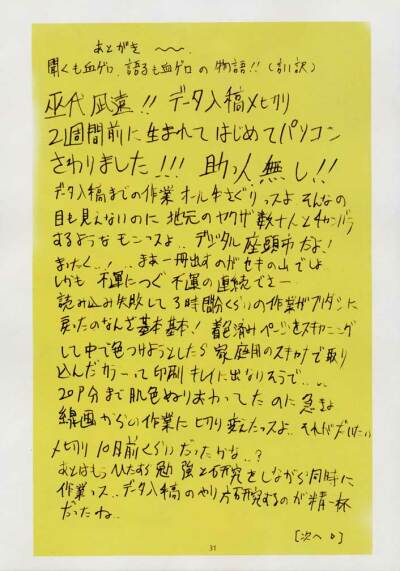 あとがき 〜〜.
聞くも血ゲロ、語るも血ゲロの物語!!(言い訳)
巫代凪遠!! データ入稿〆切り
2週間前に生まれてはじめてパソコン
さわりました!!! 助っ人無し!!
データ入稿までの作業オール手さぐりっスよ そんなの
目も見えないのに地元のヤクザ数十人とチャンバラ
するようなモンっスよ.. デジタル座頭市だよ!
まったく..!..まぁ一冊出すのがセキの山でしょ
しかも不運につぐ不運の連続でさー
読み込み失敗して3時間分くらいの作業がブリダシに
戻ったのなんざ基本基本! 着色済みページをスキャニング
して中で色つけようとしたら家庭用のスキャナで取り
込んだカラーって印刷キレイに出ないそうで....
20P分まで肌色ぬりおわってたのに急きょ
線画からの作業に切り変えたっスよ.. それがだいたい
〆切り10日前くらいだったかな..?
あとはもうひたすら勉強と研究をしながら同時に
作業っス.. データ入稿のやり方研究するのが精一杯
だったね..
[次へ]
31